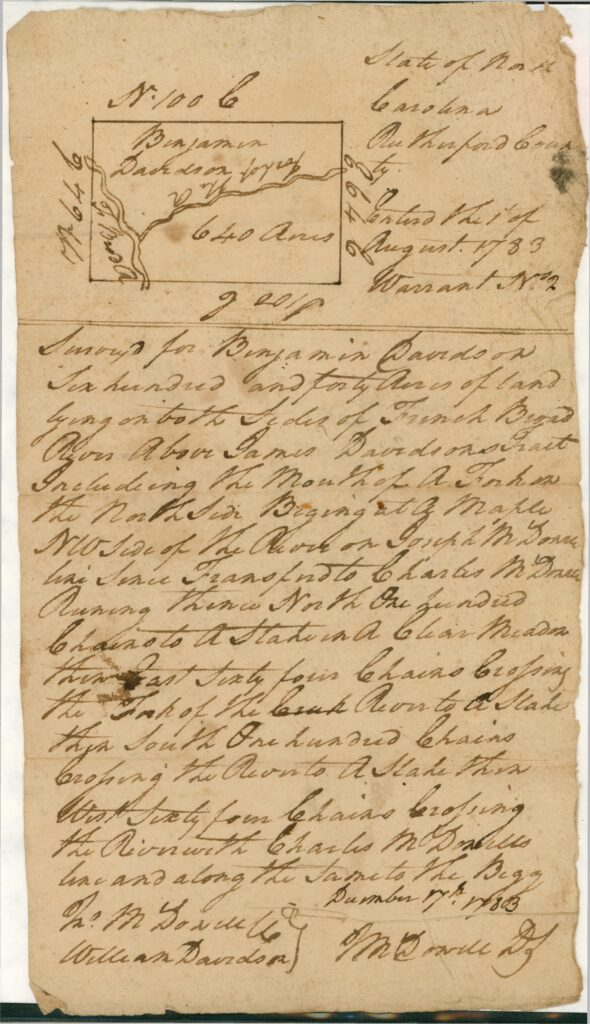 State of North
Carolina
Rutherford Coun
ty
Enterd the 1st of
August. 1783
Warrant No 2
No. 100 C
Benjamin
Davidson
Fork of the R
640 Acres
64 C
64 C
100 C
Survd for Benjamin Davidson
Six hundred and forty Acres of land
lying on both Sides of French Broad
River Above James Davidsons Tract
Includeing the Mouth of A Fork on
the North Side Begining at A Maple
NW Side of the River on Joseph McDowell
line Since Transferd to Charles McDowell
Runing thence North One hundred
Chains to A Stake in A Clear Meadow
then East Sixty four Chains Crossing
the Fork of the Creek River to A Stake
then South One hundred Chains
Crossing the River to A Stake then
West Sixty four Chains Crossing
the River with Charles McDowells
line and along the Same to the Begg
December 17th. 1783
Jno. McDowell
William Davidson
J McDowell DS